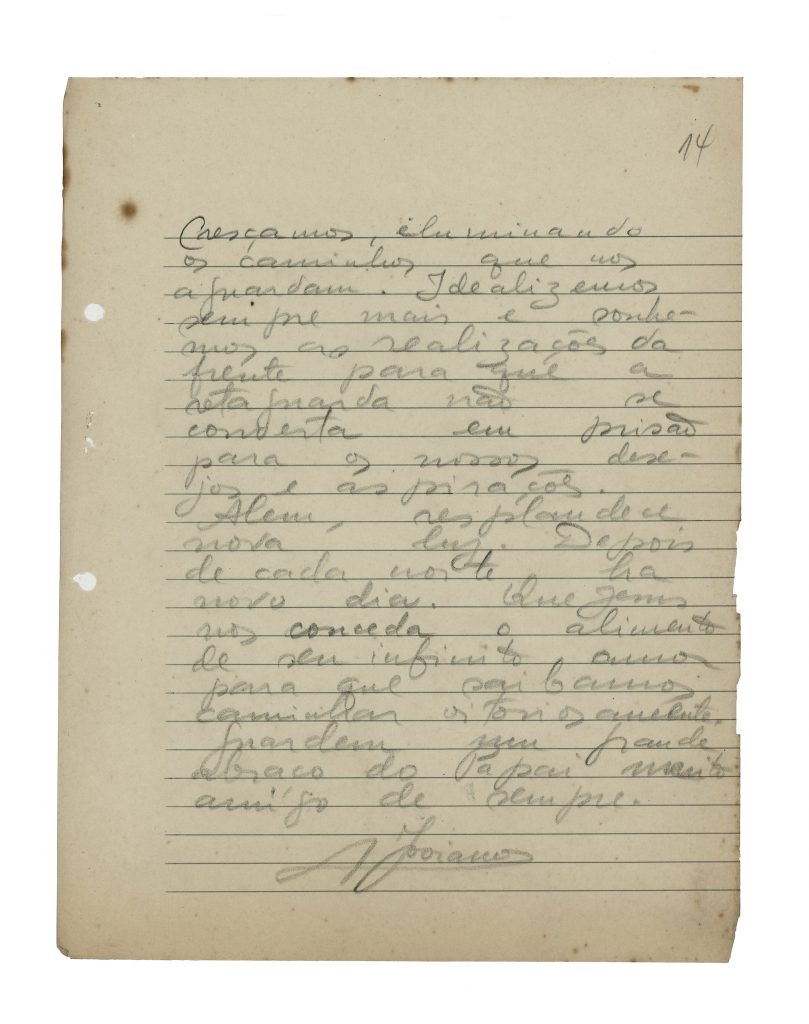 14
Cresçamos, iluminando
os caminhos que nos
aguardam. Idealizemos
sempre mais e sonhe-
mos as realizações da
frente para que a
retaguarda não se
converta em prisão
para os nossos dese-
jos e aspirações.
Alem, resplandece
nova luz. Depois
de cada noite ha
novo dia. Que Jesus
nos conceda o alimento
de seu infinito amor
para que saibamos
caminhar vitoriosamente.
Guardem um grande
abraço do Papai muito
amigo de sempre.
A Joviano